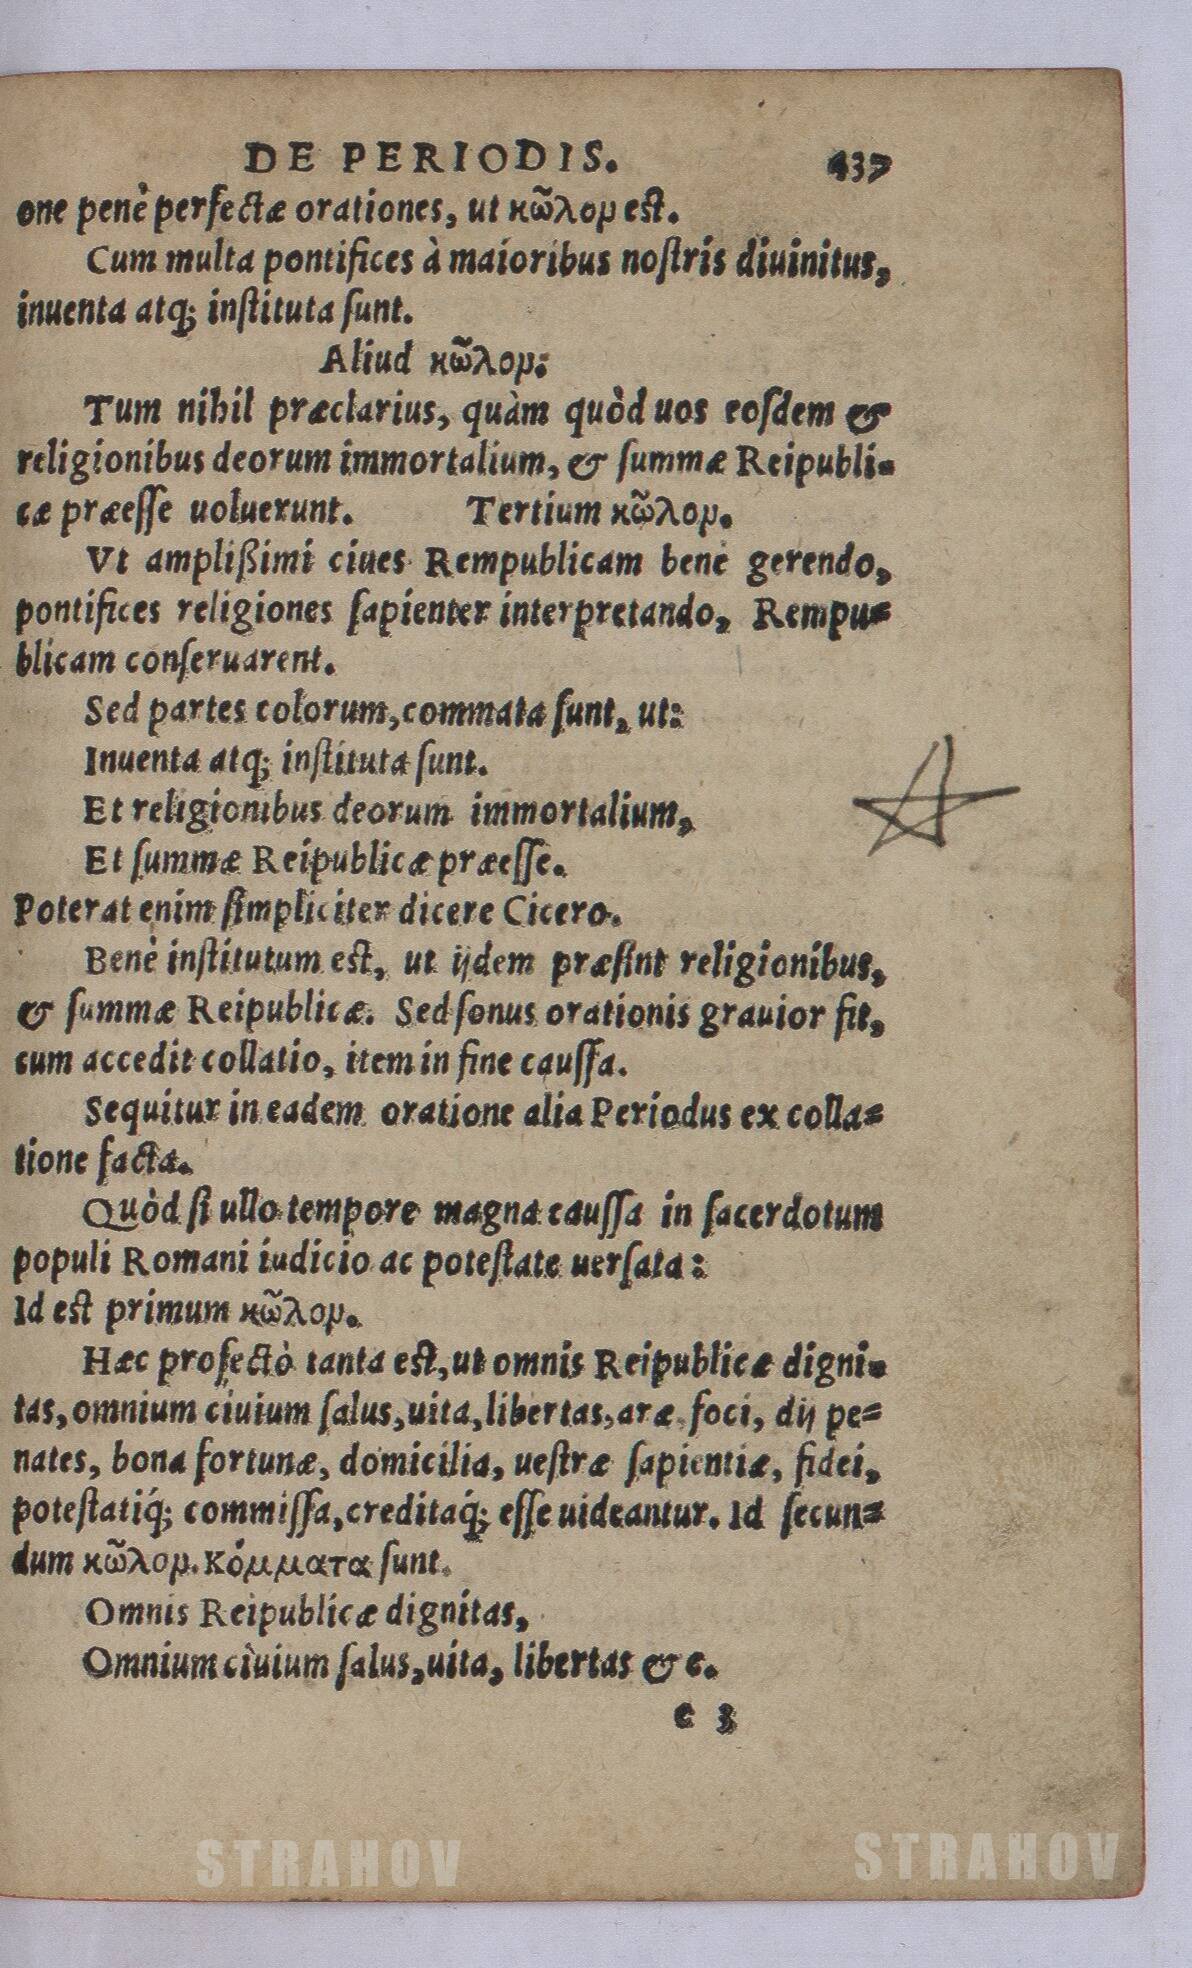 DE PERIODIS. 437
one penè perfectæ orationes, ut κῶλομ est.
Cum multa pontifices à maioribus nostris diuinitus,
inuenta atq; instituta sunt.
Aliud κῶλομ:
Tum nihil præclarius, quàm quòd uos eosdem &
religionibus deorum immortalium, & summæ Reipubli-
cæ præesse uoluerunt. Tertium κῶλομ.
Vt amplißimi ciues Rempublicam bene gerendo,
pontifices religiones sapienter interpretando, Rempu-
blicam conseruarent.
Sed partes colorum, commata sunt, ut:
Inuenta atq; instituta sunt.
Et religionibus deorum immortalium,
Et summæ Reipublicæ præesse.
Poterat enim simpliciter dicere Cicero.
Benè institutum est, ut ijdem præsint religionibus,
& summæ Reipublicæ. Sed sonus orationis grauior fit,
cum accedit collatio, item in fine caussa.
Sequitur in eadem oratione alia Periodus ex colla-
tione facta.
Quòd si ullo tempore magna caussa in sacerdotum
populi Romani iudicio ac potestate uersata:
Id est primum κῶλομ.
Hæc profectò tanta est, ut omnis Reipublicæ digni-
tas, omnium ciuium salus, uita, libertas, aræ, foci, dij pe-
nates, bona fortunæ, domicilia, uestræ sapientiæ, fidei,
potestatiq́; commissa, creditaq́; esse uideantur. Id secun-
dum κῶλομ. Κόμματα sunt.
Omnis Reipublicæ dignitas,
Omnium ciuium salus, uita, libertas & c.
c 3
STRAHOV STRAHOV